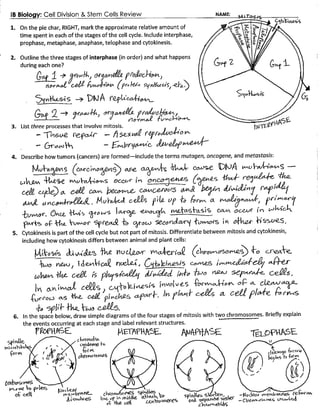 IB Biology: Cell Division & Stem Cells Review
NAME:
1. On the pie char, RIGHT, mark the approximate relative amount of
time spent in each of the stages of the cell cycle. Include interphase,
prophase, metaphase, anaphase, telophase and cytokinesis.
Mitosis
Cytokinesis
Gap 2
Gap 1
Synthesis
INTERPHASE
2. Outline the three stages of interphase (in order) and what happens
during each one?
Gap 1 → growth, organelle production,
normal cell function (protein synthesis, etc.)
Synthesis → DNA replication
Gap 2 → growth, organelle production,
normal function
3. List three processes that involve mitosis.
- Tissue repair - Asexual reproduction
- Growth - Embryonic development
4. Describe how tumors (cancers) are formed—include the terms mutagen, oncogene, and metastasis:
Mutagens (carcinogens) are agents that cause DNA mutations —
when these mutations occur in oncogenes (genes that regulate the
cell cycle) a cell can become cancerous and begin dividing rapidly
and uncontrolled. Mutated cells pile up to form a malignant, primary
tumor. Once this grows large enough metastasis can occur in which
parts of the tumor spread to grow secondary tumors in other tissues.
5. Cytokinesis is part of the cell cycle but not part of mitosis. Differentiate between mitosis and cytokinesis,
including how cytokinesis differs between animal and plant cells:
Mitosis divides the nuclear material (chromosomes) to create
two new, identical nuclei. Cytokinesis comes immediately after
when the cell is physically divided into two new separate cells.
In animal cells, cytokinesis involves formation of a cleavage
furrow as the cell pinches apart. In plant cells a cell plate forms
to split the two cells.
6. In the space below, draw simple diagrams of the four stages of mitosis with two chromosomes. Briefly explain
the events occurring at each stage and label relevant structures.
PROPHASE METAPHASE ANAPHASE TELOPHASE
spindle
microtubules
form
chromatin
condense to
form
chromosomes
centrosomes
move to poles
of cell
nuclear
membrane
dissolves
chromosomes
line up in middle
of the cell
spindles
attach to
centromeres
spindles shorten
and separate sister
chromatids
cleavage furrow
begins to form
- Nuclear membranes reform
- Chromosomes uncoil